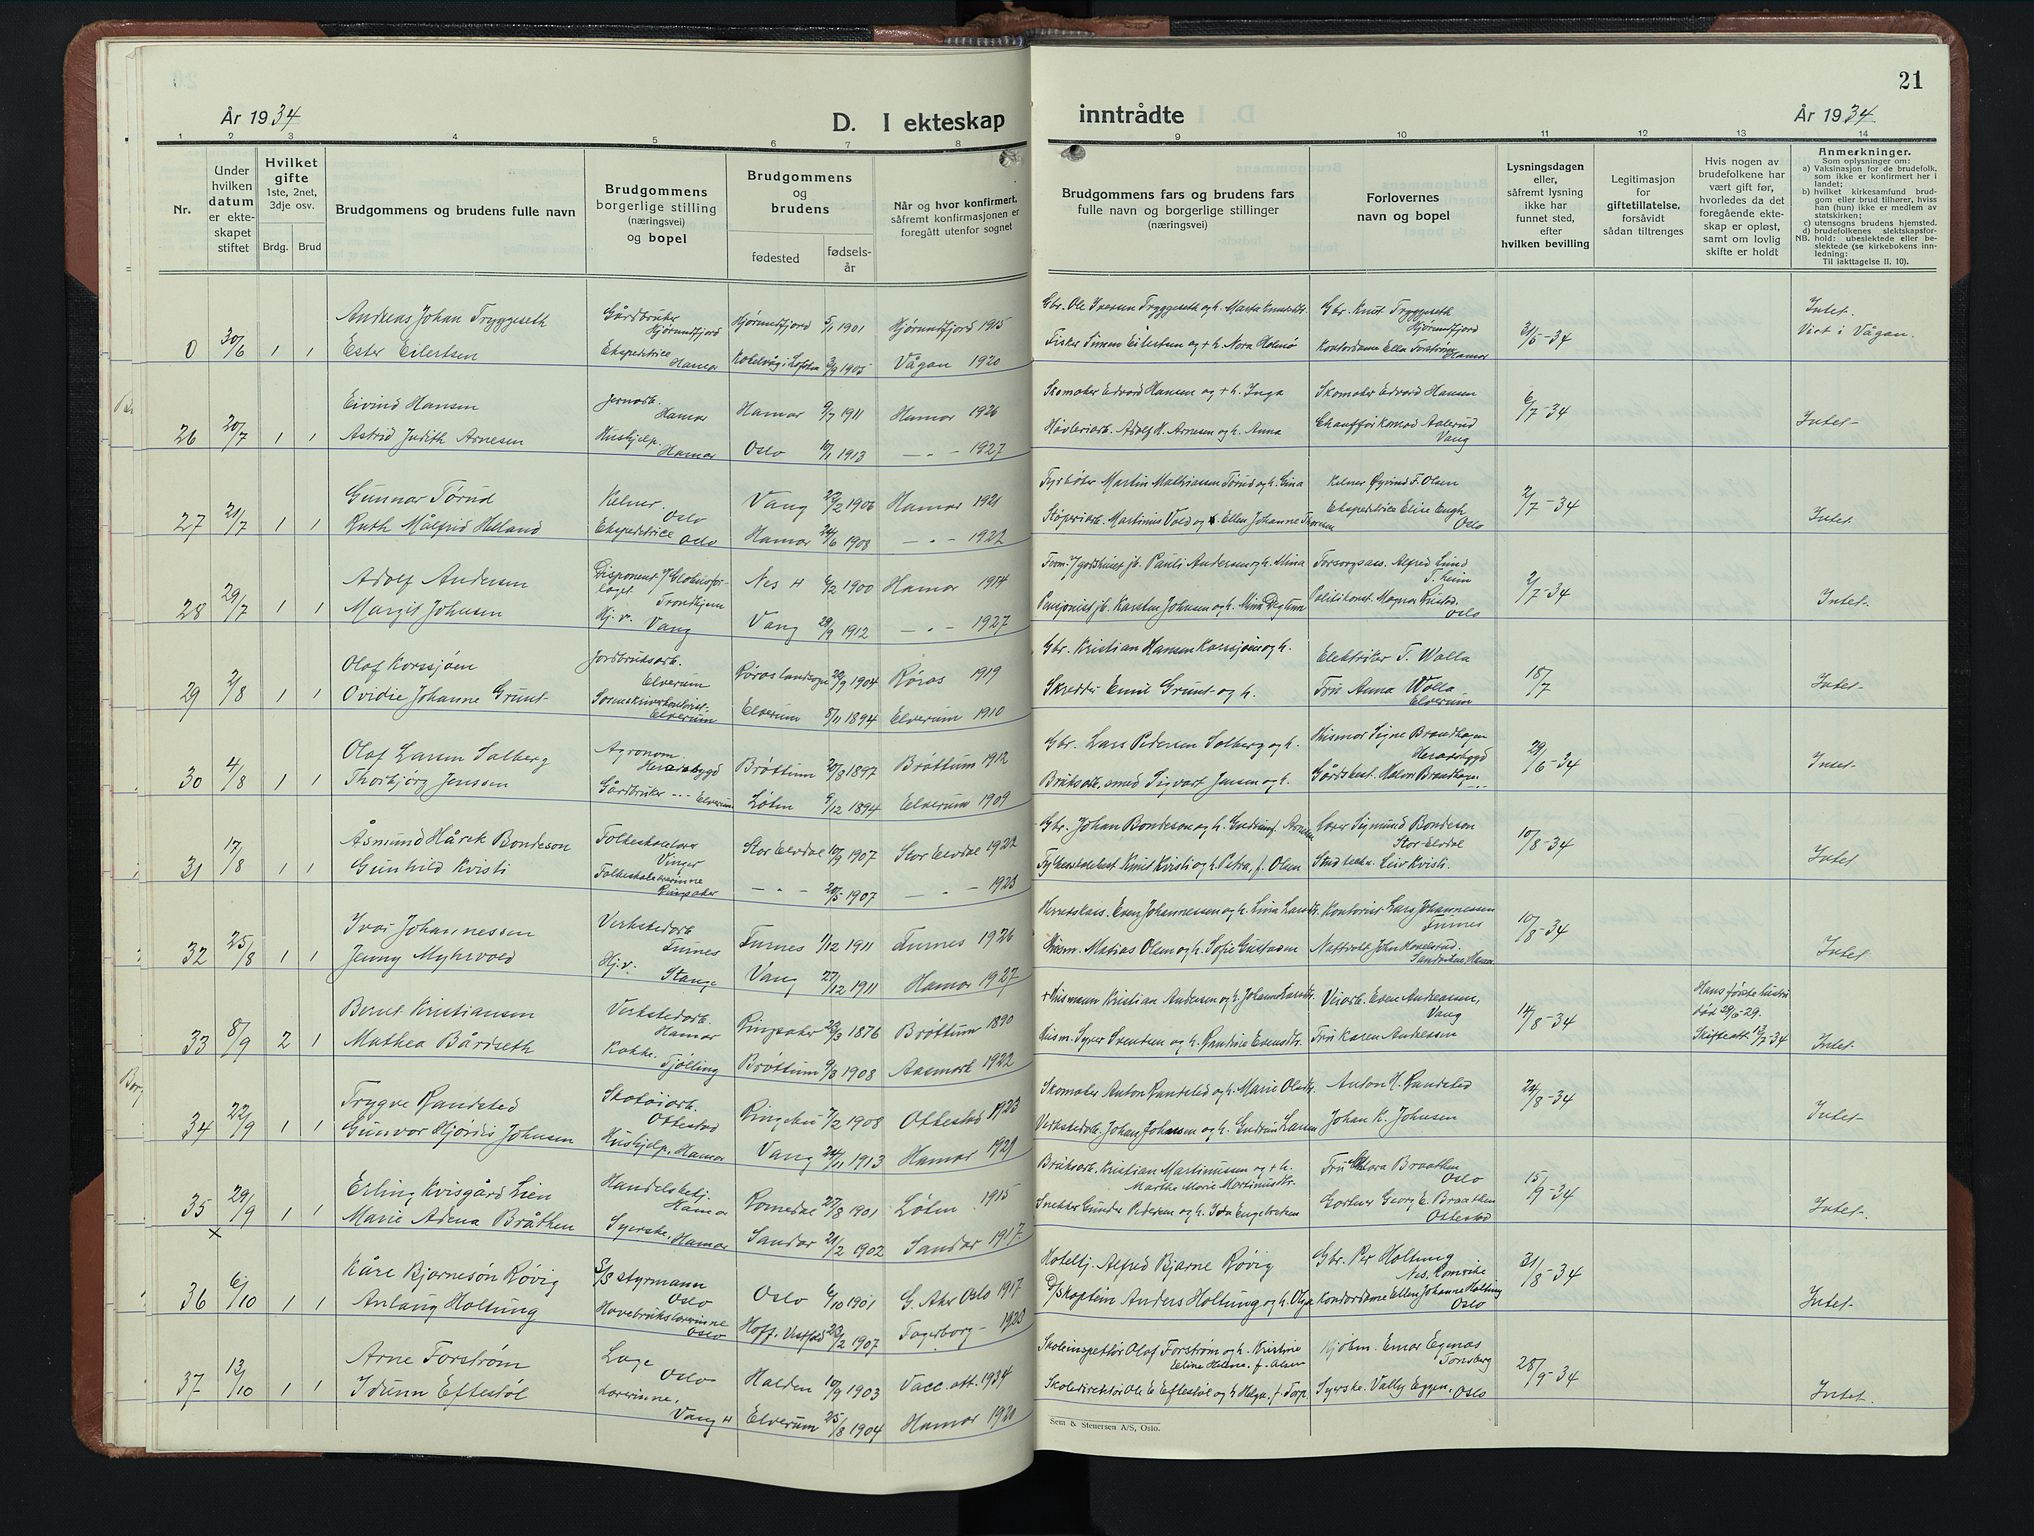 21
År 1934
D. I ekteskap
inntrådte
År 1934
1 2 3 4 5 6 7 8 9 10 11 12 13 14
Nr.
Under
hvilken
datum
er ekte-
skapet
stiftet
Hvilket
gifte
1ste, 2net,
3dje osv.
Brdg. Brud
Brudgommens og brudens fulle navn
Brudgommens
borgerlige stilling
(næringsvei)
og bopel
Brudgommens
og
brudens
fødested
fødsels-
år
Når og hvor konfirmert,
såfremt konfirmasjonen er
foregått utenfor sognet
Brudgommens fars og brudens fars
fulle navn og borgerlige stillinger
(næringsvei)
Forlovernes
navn og bopel
Lysningsdagen
eller,
såfremt lysning
ikke har
funnet sted,
efter
hvilken bevilling
Legitimasjon
for
giftetillatelse,
forsåvidt
sådan tiltrenges
Hvis nogen av
brudefolkene har
vært gift før,
hvorledes da det
foregående ekte-
skap er opløst,
samt om lovlig
skifte er holdt
Anmerkninger.
Som oplysninger om:
a) Vaksinasjon for de brudefolk,
som ikke er konfirmert her i
landet;
b) hvilket kirkesamfund brud-
gom eller brud tilhører, hviss
han (hun) ikke er medlem av
statskirken;
c) utensogns brudens hjemsted.
d) brudefolkenes slektskapsfor-
NB. hold: ubeslektede eller be-
slektede (se kirkebokens inn-
ledning:
Til iakttagelse II. 10).
0 30/6 1 1
Andreas Johan Tryggeseth Gårdbruker Hjørundfjord Hjørundfjord 5/1 1901 Hjørundfjord 1915 Gbr. Ole Iversen Tryggeseth og h. Marta Knutsdtr. Gbr. Knut Tryggeseth Hjørundfjord 31/5-34 Intet.
Ester Eilertsen Ekspeditrice Hamar 3/9 1905 Vågan 1920 Fisker Simon Eilertsen og + h. Nora Holmø Kontordame Ella Forstrøm Hamar Viet i Vågan.
26 20/7 1 1
Eivind Hansen Jernarb. Hamar Hamar 9/7 1911 Hamar 1926 Skomaker Edvard Hansen og + h. Inga Skomaker Edvard Hansen 6/7-34 Intet-
Astrid Judith Arnesen Hushjelp. Hamar Oslo 10/1 1913 - " - 1927 Høvleriarb. Adolf H. Arnesen og h. Anna Chauffør Konrad Aalerud Vang
27 21/7 1 1
Gunnar Tørud Kelner. Oslo Vang 22/2 1906 Hamar 1921 Fyrbøter Martin Mathiassen Tørud og h. Gina Kelner Øyvind F. Olsen 2/7-34 Intet.
Ruth Målfrid Helland Ekspeditrice Oslo Hamar 24/6 1908 - " - 1922 Støperiarb. Martinius Vold og Ellen Johanne Thoresen Ekspeditrice Elise Engh Oslo
28 29/7 1 1
Adolf Andersen Disponent v/ Globusfor-
laget. Trondhjem Nes H 6/2 1900 Hamar 1914 Pauli Andersen og h. Mina Forsorgsass. Alfred Lund T.heim 2/7-34 Intet-
Margit Johnsen Hj. v. Vang Vang 29/9 1912 - " - 1927 Pensjonist jb. Karsten Johnsen og h. Mina Degtun Politikonst. Magnar Rustad. Oslo
29 2/8 1 1
Olaf Korssjøen Jordbruksarb. Elverum Røros landsogn 22/9 1904 Røros 1919 Gbr. Kristian Hansen Korssjøen og h. Elektriker T. Wolla 18/7 Intet-
Ovidie Johanne Grunt Elverum Elverum 8/11 1894 Elverum 1910 Skredder Emil Grunt og h. Fru Anna Wolla Elverum
30 4/8 1 1
Olaf Larsen Solberg Agronom. Heradsbygd Brøttum 20/3 1897 Brøttum 1912 Gbr. Lars Pedersen Solberg og h. Husmor Signe Brandhagen Heradsbygd 29/6-34 Intet-
Thorbjørg Jenssen Gårdbruker - " - Elverum Løten 9/12 1894 Elverum 1909 Bruksarb., smed Sigvart Jensen og h. Gårdsbest. Halvor Brandhagen
31 17/8 1 1
Åsmund Hårek Bondeson Folkeskolelærer Vinger Stor Elvdal 10/9 1907 Stor Elvdal 1922 Gbr. Johan Bondeson og h. Gudrun f. Arnesen Lærer Sigmund Bondeson Stor Elvdal 10/8-34 Intet
Gunhild Kvisti Folkeskolelærerinne Ringsaker - " - 20/5 1907 - " - 1923 Knut Kvisti og h. Petra, f. Olsen Stud techn. Leiv Kvisti.
32 25/8 1 1
Ivar Johannessen Verkstedarb Furnes Furnes 1/12 1911 Furnes 1926 Herredskass. Even Johannessen og h. Lina Larsdtr. Kontorist Lars Johannessen Furnes 10/8-34 Intet
Jenny Myhrvold Hj. v. Stange Vang 27/12 1911 Hamar 1927 Husm. Matias Olsen og h. Sofie Gustavsen Nattvakt John Hovelstad. Sandviken, Hamar
33 8/9 2 1
Bernt Kristiansen Verkstedarb. Hamar Ringsaker 23/3 1876 Brøttum 1890 + Husmann Kristian Andersen og h. Johanne Larsdtr. Veiarb. Even Andreassen, Vang 14/8-34 Hans første hustru
død 29/6-29. Skifteatt. 12/7-34 Intet-
Mathea Bårdseth Kokke. Tjølling Brøttum 9/3 1908 Aasmark 1922 Husm. Syver Svendsen og h. Randine Evensdtr. Fru Karen Andressen
34 22/9 1 1
Trygve Randsted Skotøiarb. Ottestad Ringebu 7/2 1908 Ottestad 1923 Skomaker Anton Randsted og h. Marie Olsdtr. Anton H. Randsted 24/8-34 Intet-
Gunvor Hjørdis Johnsen Hushjelp. Hamar Vang 24/11 1913 Hamar 1929 Verkstedarb. Johan Johnsen og h. Gudrun Larsen Johan K. Johnsen
35 29/9 1 1
x
Erling Kvisgård Lien Handelsbetj. Hamar Romedal 27/8 1901 Løten 1915 Bruksarb. Kristian Martinussen og + h.
Marthe Marie Martinusdtr. Fru Thora Braathen Oslo 15/9-34 Intet-
Marie Adena Bråthen Syerske. Hamar Sandar 21/2 1902 Sandar 1917. Snekker Gunder Pedersen og h. Ida Engebretsen Gartner Georg E. Braathen Ottestad
36 6/10 1 1
Kåre Bjarnesøn Røvig S/S styrmann Oslo Oslo 6/10 1901 G. Aker Oslo 1917 Hotelbj. Alfred Bjarne Røvig Gbr. Per Holtung Nes, Romerike 31/8-34 Intet-
Anlaug Holtung Havebrukslærerinne Oslo Hoff, Vestfold 23/2 1907 Fagerborg - 1923 D/S Kaptein Anders Holtung og h. Olga Kontordame Ellen Johanne Holtung Oslo
37 13/10 1 1
Arne Forstrøm Læge Oslo Halden 10/9 1903 Vacc. att. 1934 Skoleinspektør Olaf Forstrøm og h. Kristine
Eline Helene, f. Olsen Kjøbm. Einar Egenæs Tønsberg 28/9-34 Intet.
Idunn Eftestøl Lærerinne, Vang H Elverum 25/8 1904 Hamar 1920 Skoledirektør Ole E. Eftestøl og h. Helga, f. Torp. Syerske. Vally Eggen, Oslo
Sem & Stenersen A/S, Oslo.